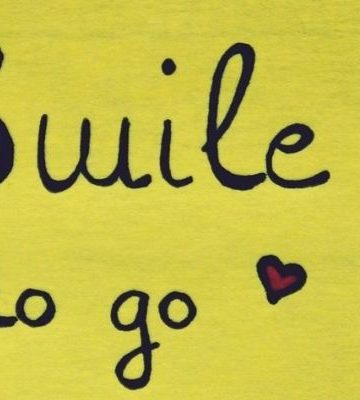 Smile
to go